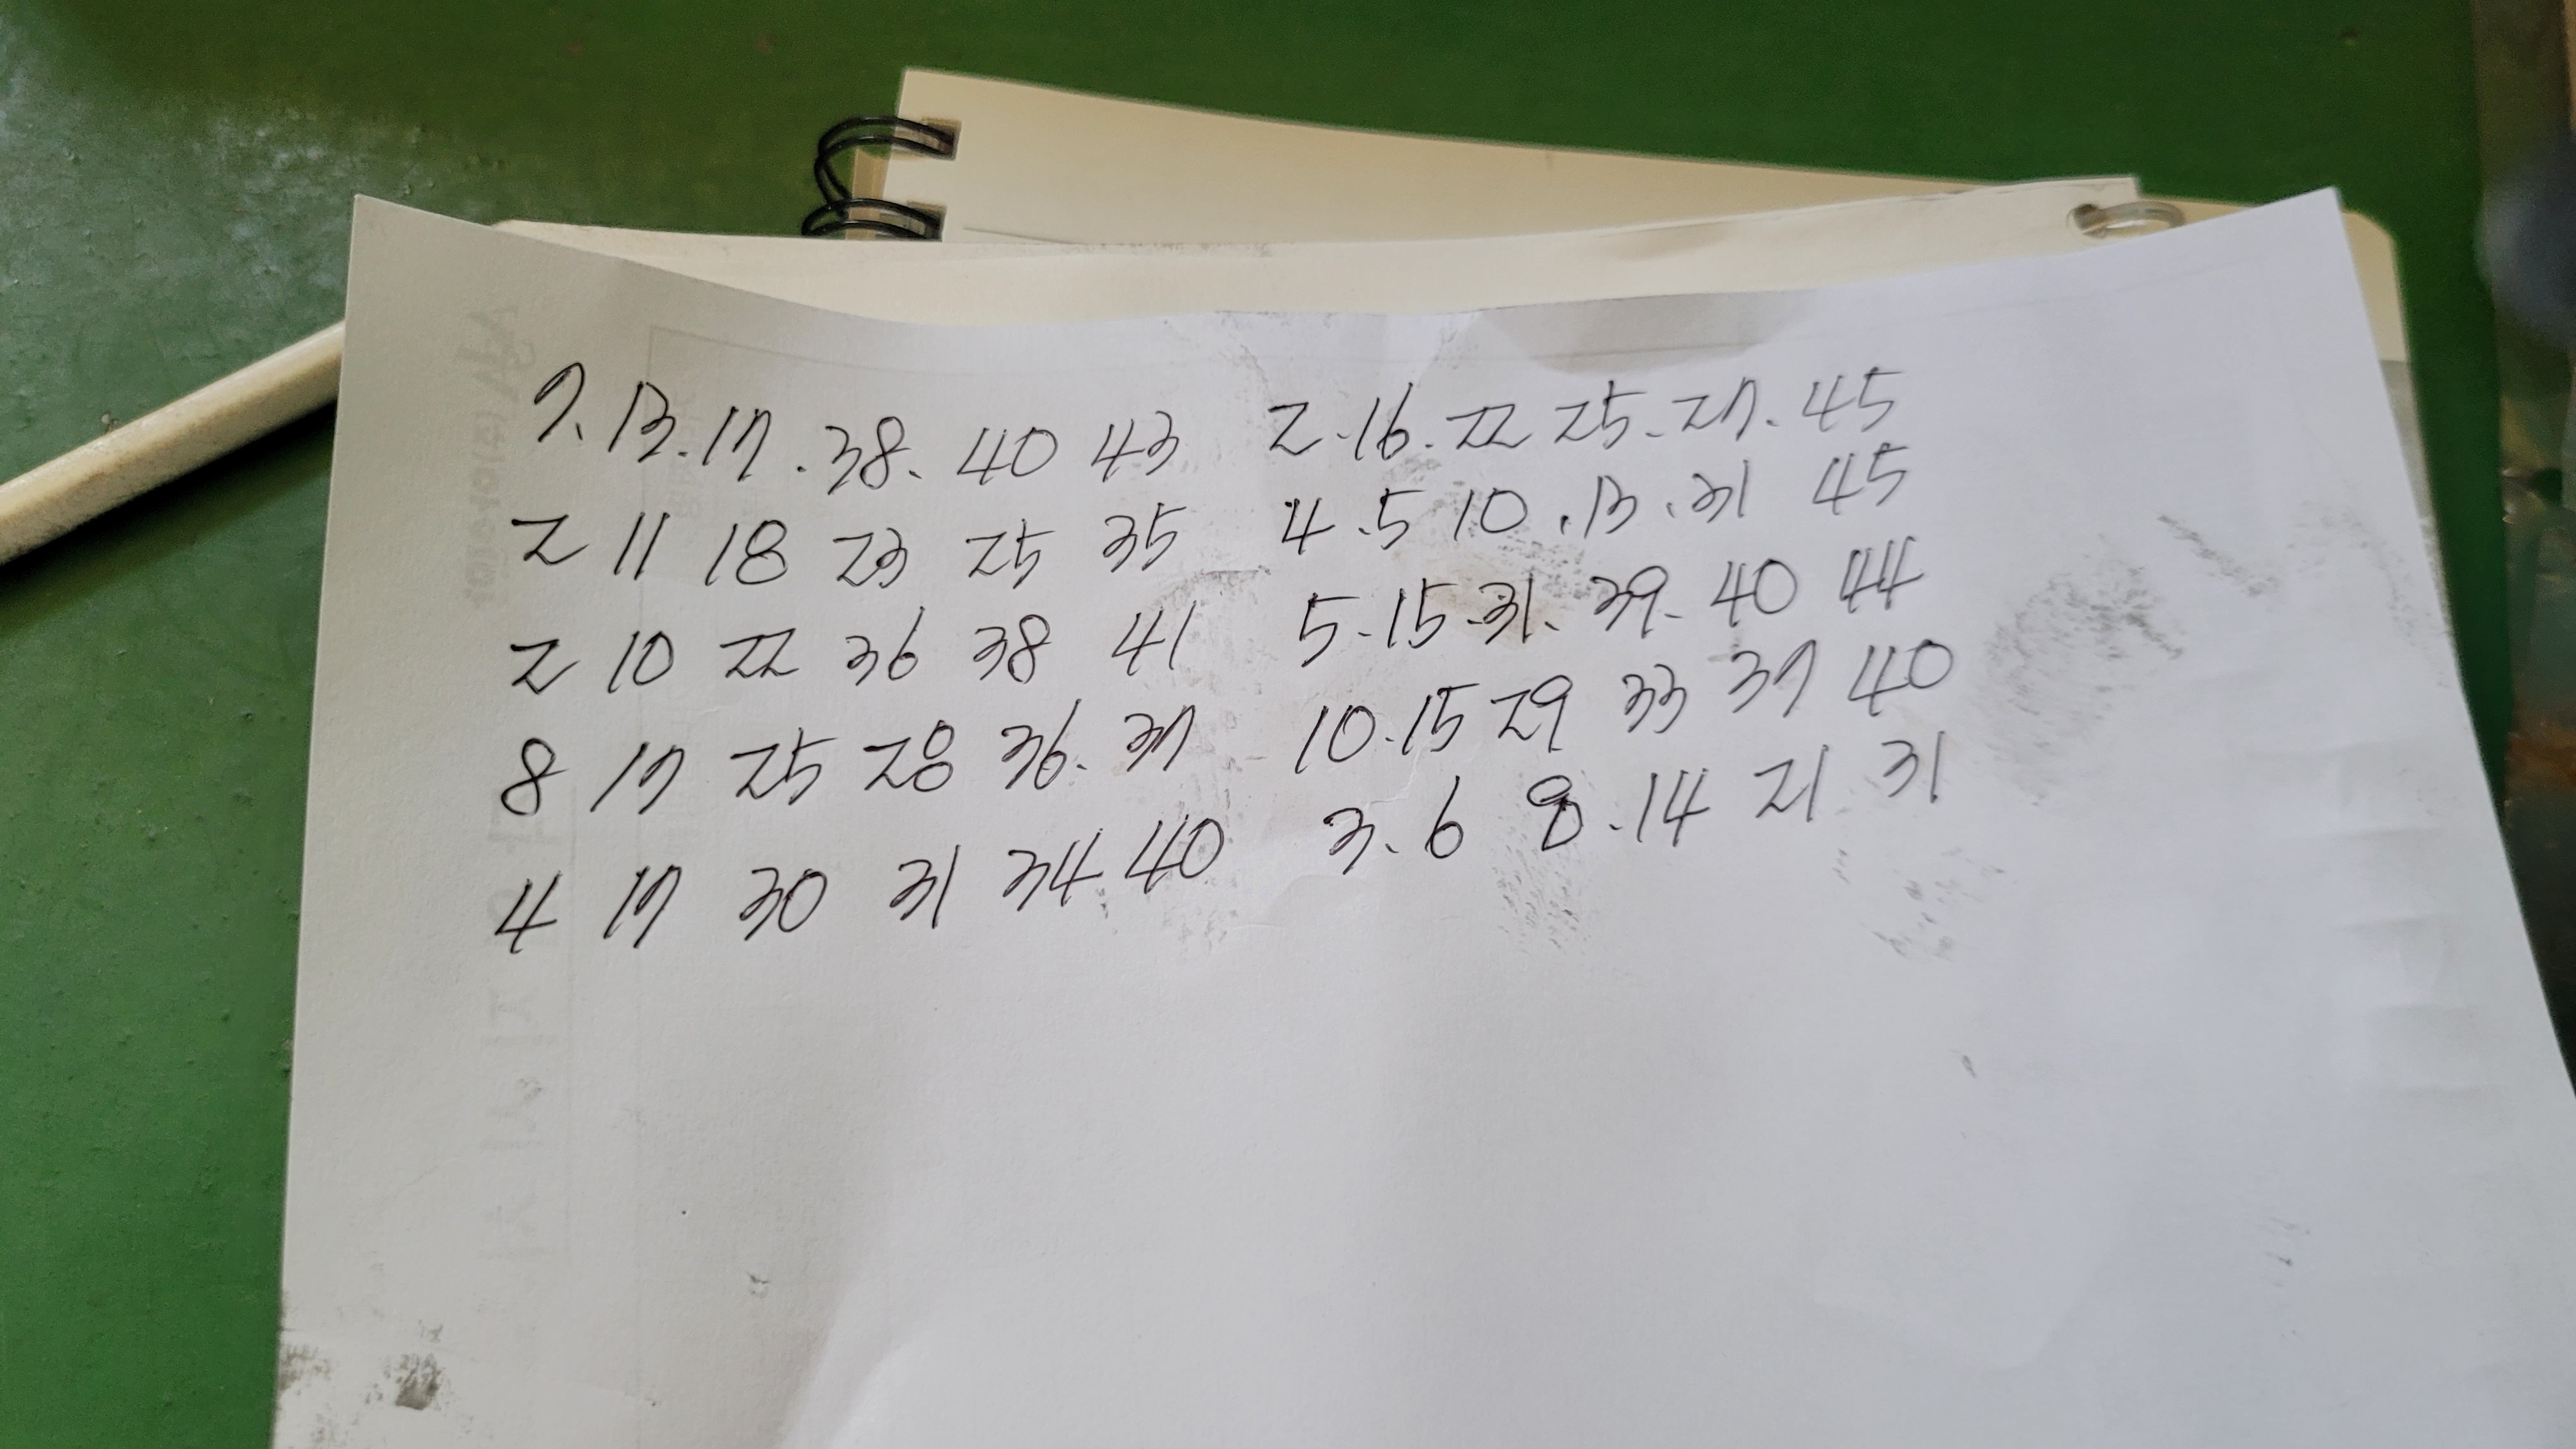 7. 13. 17. 38. 40 43 2. 16. 22 25. 27. 45
2 11 18 23 25 35 4. 5 10. 13. 31 45
2 10 22 36 38 41 5. 15. 31. 39. 40 44
8 17 25 28 36. 37 10. 15 29 33 37 40
4 17 30 31 34 40 3. 6 8. 14 21 31